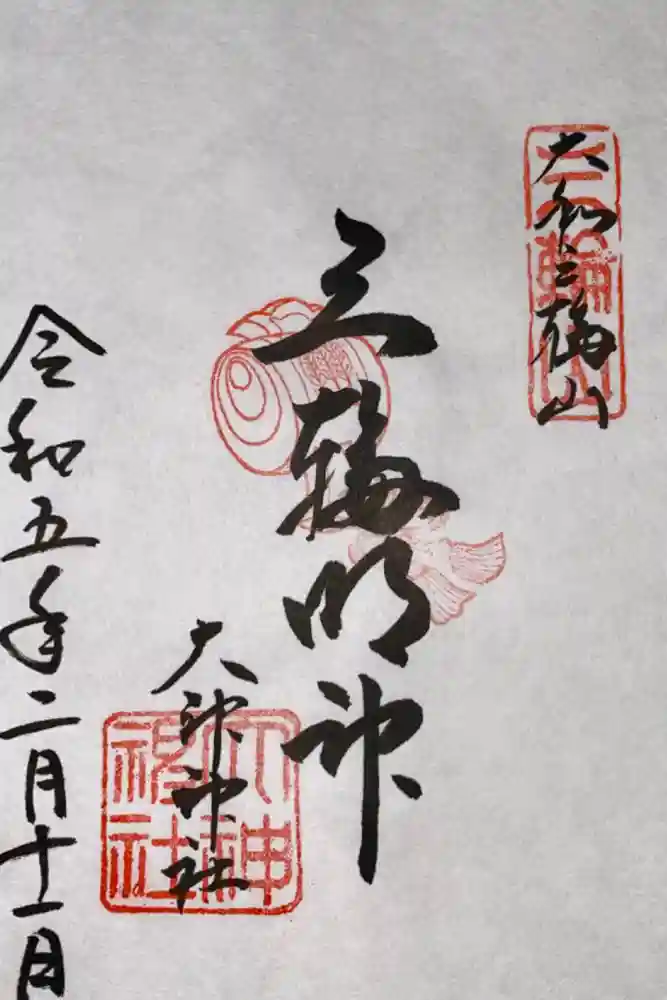 大和三輪山
三輪山
三輪明神
大神神社
大神
神社
令和五年二月十一日